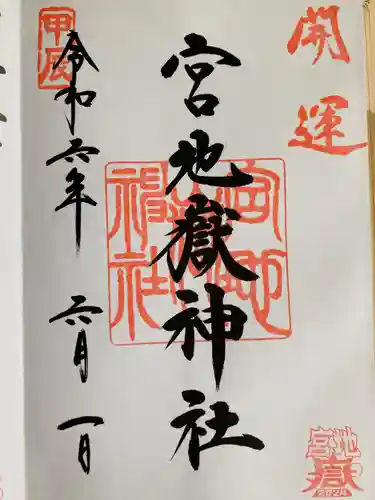 開運
宮地嶽神社
宮地嶽神社
宮地嶽
2024
甲辰
令和六年 六月 一日